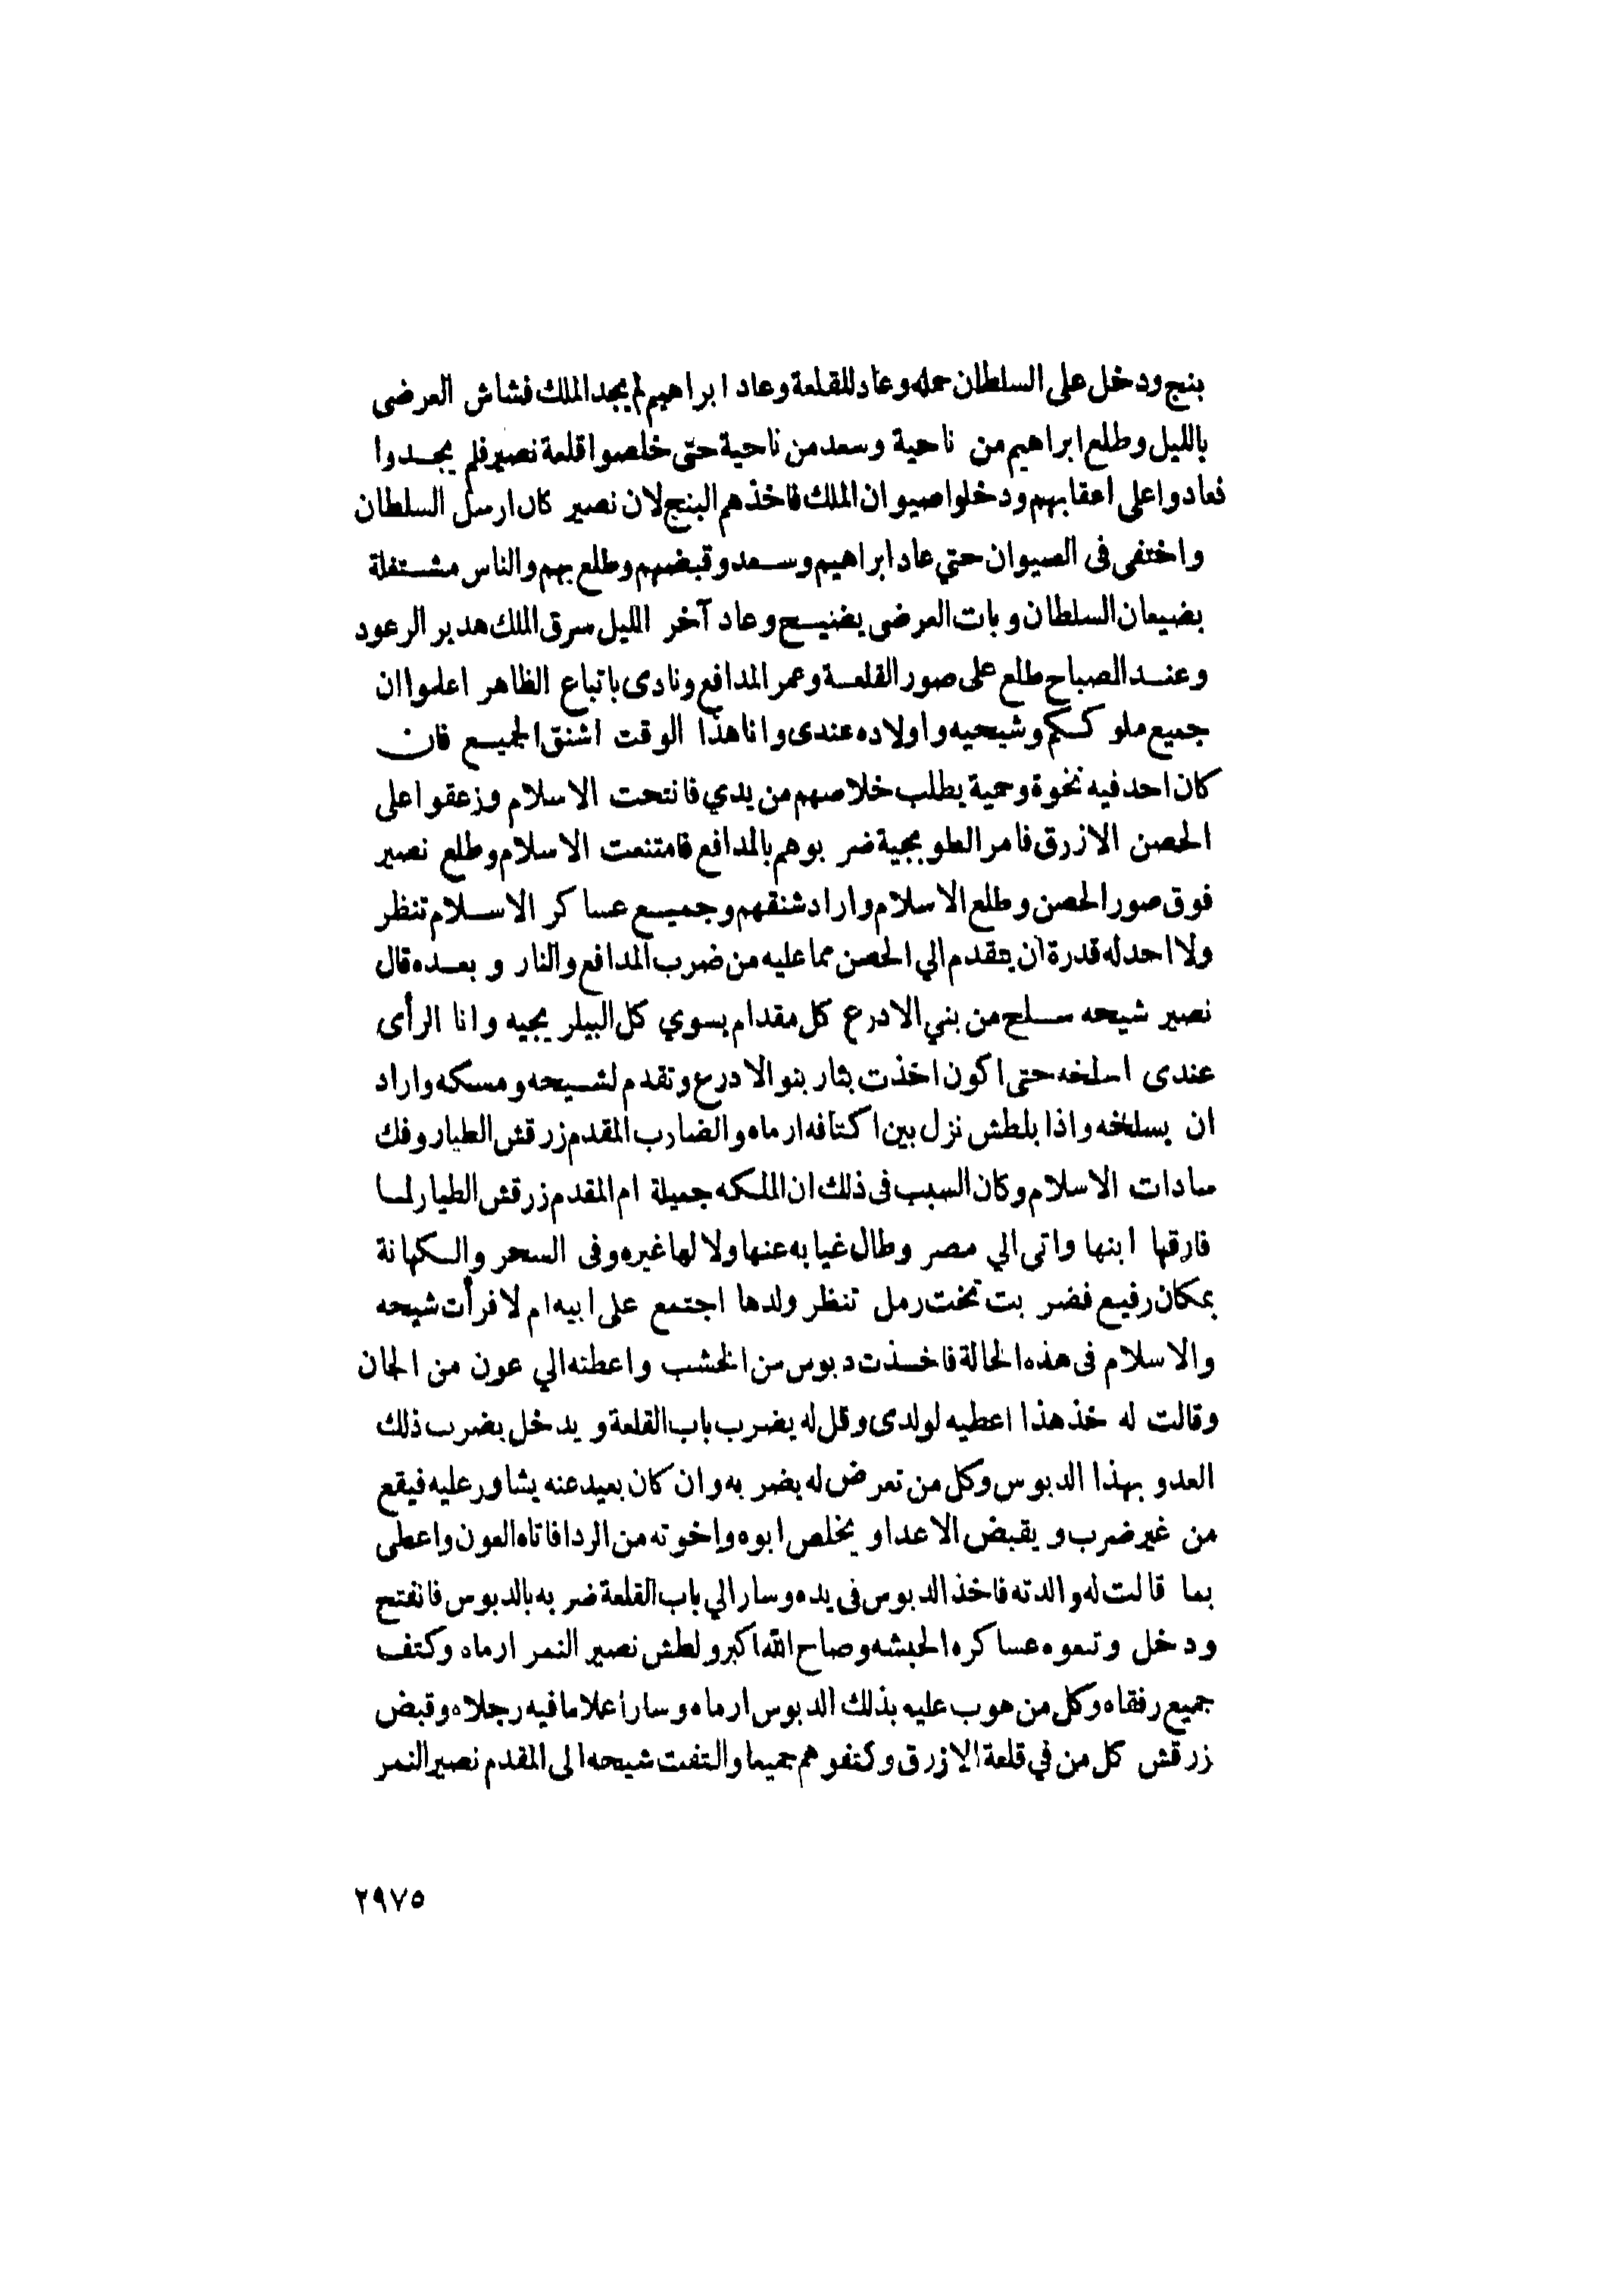 بنج ودخل على السلطان حمله وعاد للقلعة وعاد ابراهيم لم يجد الملك فشاش العرضى
بالليل وطلع ابراهيم من ناحية وسعد من ناحية حتى خلصوا قلعة نصير فلم يجدوا
فعادوا على اعقابهم ودخلوا صيوان الملك فاخذهم البنج لان نصير كان ارسل السلطان
واختفى فى الصيوان حتي عاد ابراهيم وسعد وقبضهم وطلع بهم والناس مشتغلة
بضيعان السلطان وبات العرضى يضنيح وعاد آخر الليل سرق الملك هدير الرعود
وعند الصباح طلع على صور القلعة وعمر المدافع ونادى باتباع الظاهر اعلموا ان
جميع ملوككم وشيحيه واولاده عندى وانا هذا الوقت اشنق الجميع فان
كان احد فيه نخوة وحمية يطلب خلاصهم من يدي فانتحت الاسلام وزعقوا على
الحصن الازرق فامر الطوبجية ضربوهم بالمدافع فامتنعت الاسلام وطلع نصير
فوق صور الحصن وطلع الاسلام واراد شنقهم وجميع عساكر الاسلام تنظر
ولا احد له قدرة أن يتقدم الي الحصن مما عليه من ضرب المدافع والنار وبعده قال
نصير شيحه سلح من بني الادرع كل مقدام يسوي كل البيلر يجيه وانا الرأى
عندى اسلخه حتى اكون اخذت بثار بنو الادرع وتقدم لشيحه ومسكه واراد
ان يسلخه واذا بلطش نزل بين اكتافه ارماه والضارب المقدم زرقش الطيار وفك
سادات الاسلام وكان السبب فى ذلك ان الملكه جميلة ام المقدم زرقش الطيار لما
فارقها ابنها واتى الي مصر وطال غيابه عنها ولا لها غيره وفى السحر والكهانة
بمكان رفيع فضربت تخت رمل تنظر ولدها اجتمع على ابيه ام لا فرأت شيحه
والاسلام فى هذه الحالة فاخذت دبوس من الخشب واعطته الي عون من الجان
وقالت له خذ هذا اعطيه لولدى وقل له يضرب باب القلعة ويدخل يضرب ذلك
العدو بهذا الدبوس وكل من تعرض له يضربه وان كان بعيد عنه يشاور عليه فيقع
من غير ضرب ويقبض الاعدا ويخلص ابوه واخوته من الردا فاتاه العون واعطى
بما قالت له والدته فاخذ الدبوس فى يده وسار الي باب القلعة ضربه بالدبوس فانفتح
ودخل وتبعوه عساكره الحبشه وصاح الله اكبر ولطش نصير النمر ارماه وكتف
جميع رفقاه وكل من هوب عليه بذلك الدبوس ارماه وسار أعلا ما فيه رجلاه وقبض
زرقش كل من في قلعة الازرق وكتفوهم جميعا والتفت شيحه الى المقدم نصير النمر
٢٩٧٥